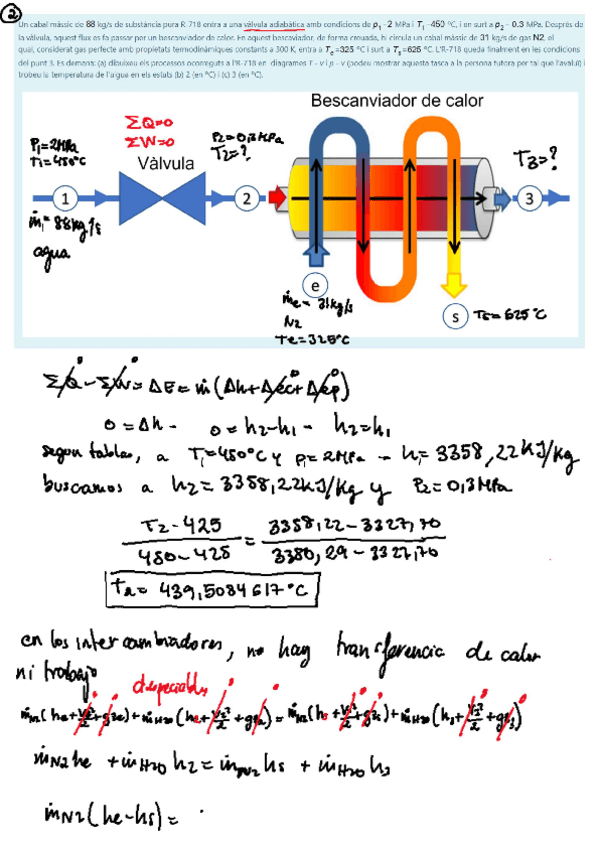 2
Un cabal màssic de 88 kg/s de substància pura R-718 entra a una vàlvula adiabàtica amb condicions de p1 = 2 MPa i T1 = 450 ºC, i en surt a p2 = 0.3 MPa. Després de
la vàlvula, aquest flux es fa passar per un bescanviador de calor. En aquest bescanviador, de forma creuada, hi circula un cabal màssic de 31 kg/s de gas N2, el
qual, considerat gas perfecte amb propietats termodinàmiques constants a 300 K, entra a Te =325 ºC i surt a Ts =625 ºC. L'R-718 queda finalment en les condicions
del punt 3. Es demana: (a) dibuixeu els processos ocorreguts a l'R-718 en diagrames T - v i p - v (podeu mostrar aquesta tasca a la persona tutora per tal que l'avaluï) i
trobeu la temperatura de l'aigua en els estats (b) 2 (en ºC) i (c) 3 (en ºC).
Bescanviador de calor
ΣQ=0
ΣW=0
P1=2MPa
T1=450ºC
P2=0,3MPa
T2=?
Vàlvula
T3=?
1
2
3
ṁ1=88kg/s
agua
e
ṁe= 31kg/s
N2
Te=325ºC
s
Ts=625ºC
ΣQ̇-ΣẆ=ΔE=ṁ(Δh+Δec+Δep)
0=Δh - 0=h2-h1 - h2=h1
segun tablas, a T1=450ºC y P1=2MPa - h1=3358,22kJ/kg
buscamos a h2=3358,22kJ/kg y P2=0,3MPa
T2-425 / 450-425 = 3358,22-3327,70 / 3380,29-3327,70
T2= 439,5084617ºC
en los intercambiadores, no hay transferencia de calor
ni trabajo
despreciables
ṁN2(he+Ve²/2+gze)+ṁH2O(h2+V2²/2+gz2)=ṁN2(hs+Vs²/2+gzs)+ṁH2O(h3+V3²/2+gz3)
ṁN2he+ṁH2Oh2=ṁN2hs+ṁH2Oh3
ṁN2(he-hs)=